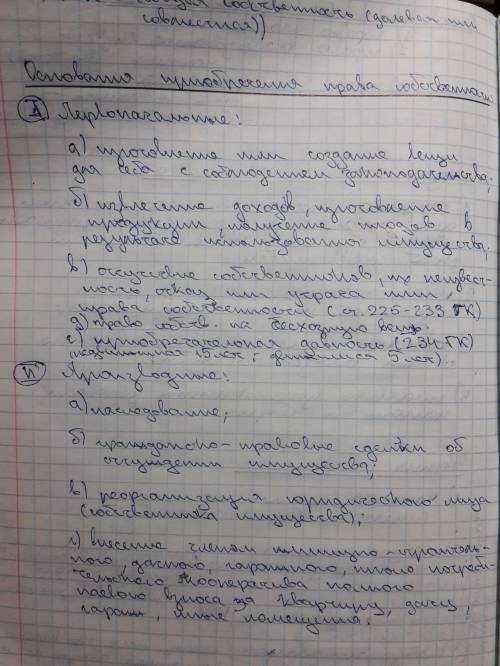 общая собственность (долевая или
совместная))
Основания приобретения права собственности:
I Первоначальные:
а) изготовление или создание вещи
для себя с соблюдением законодательства;
б) извлечение доходов, изготовление
продукции, получение плодов в
результате использования имущества;
в) отсутствие собственников, их неизвест-
ность, отказ или утрата ими
права собственности (ст. 225-233 ГК)
д) право собств. на бесхозную вещь.
е) приобретательная давность (234 ГК)
15 лет; движимися 5 лет)
II Производные:
а) наследование;
б) гражданско-правовые сделки об
отчуждении имущества;
в) реорганизация юридического лица
(собственника имущества);
г) внесение членом жилищно-строитель-
ного, дачного, гаражного, иного потреби-
тельского кооператива полного
паевого взноса за квартиру, дачу,
гараж, иные помещения.